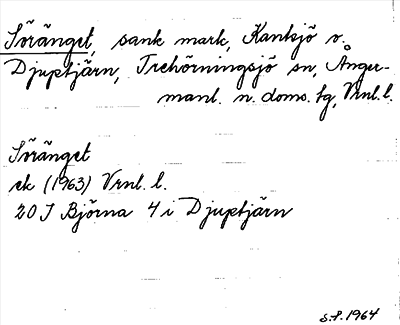 Söränget, sank mark, Kantsjö v.
Djuptjärn, Trehörningsjö sn, Ånger-
manl. n. doms. tg, Vrnl. l.
Söränget
ek (1963) Vrnl. l.
20 J Björna 4 i Djuptjärn
S.P. 1964